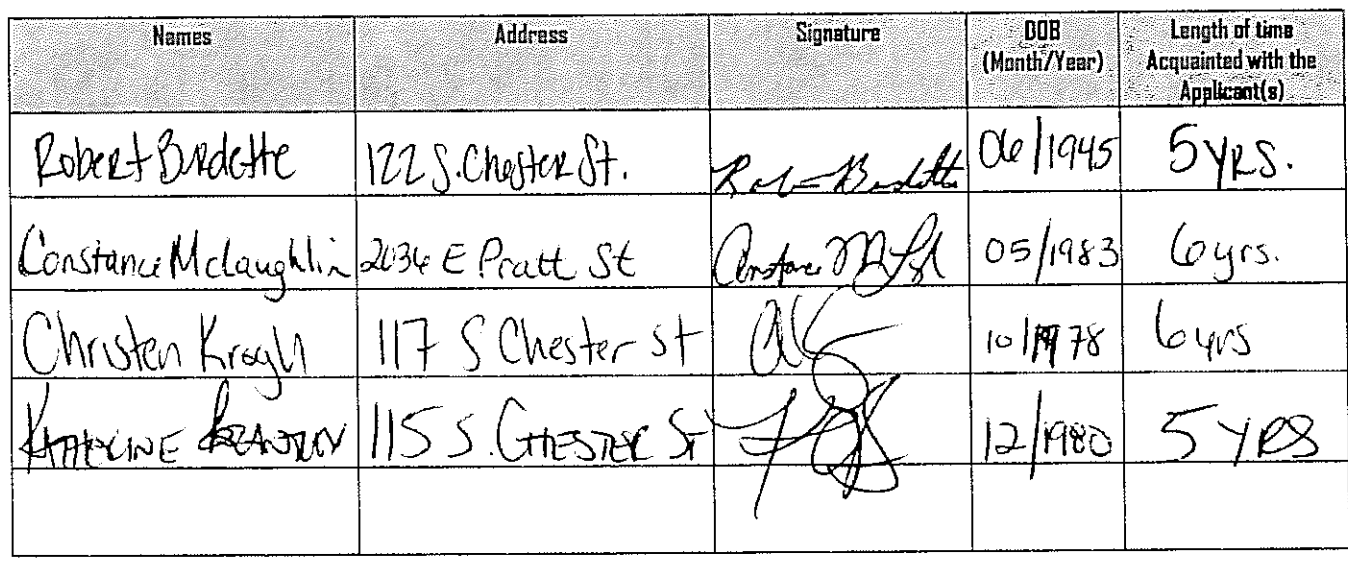 Names Address Signature DOB (Month/Year) Length of time Acquainted with the Applicant(s)
Robert Burdette 122 S. Chester St. 06/1945 5 YRS.
Constance Mclaughlin 2036 E Pratt St 05/1983 6 yrs.
Christen Krogh 117 S Chester st 10/1978 6 yrs
KATHERINE 115 S. CHESTER ST 12/1980 5 YRS